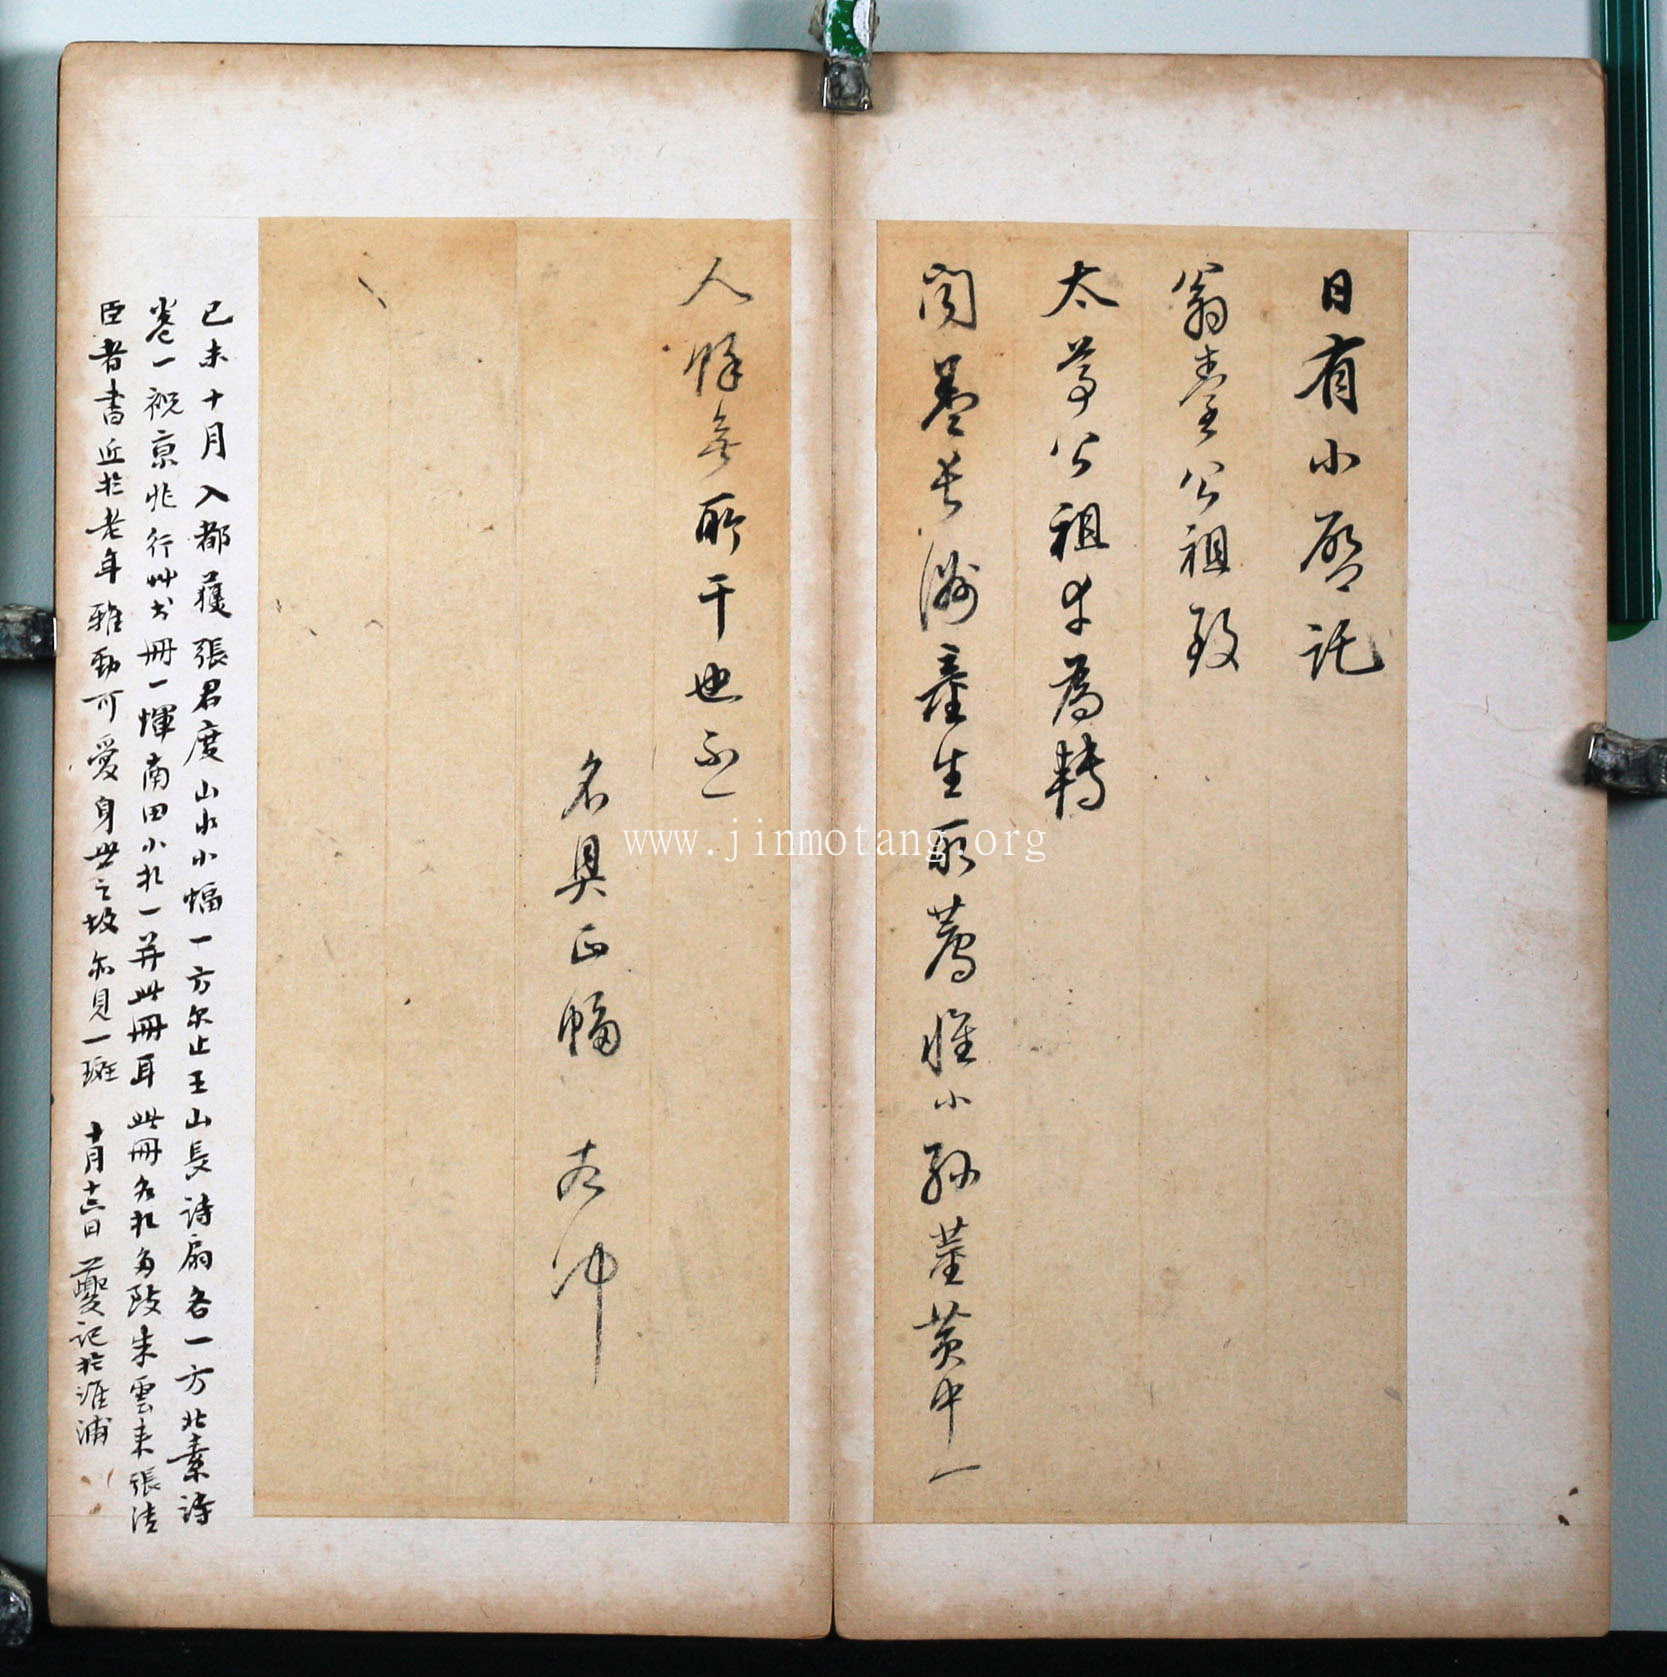 日有小啓託
翁臺公祖致
太尊公祖求為轉
閱蓋長洲童生所薦惟小孫董黃中一
人餘無所干也不一
名具正幅 左冲
己未十月入都獲張君度山水小幅一方尔止王山長詩扇各一方北素詩
卷一祝京兆行艸書冊一惲南田小札一并此冊耳此冊名札多段朱雲来張清
臣者書近於老年雅勁可愛身世之故亦見一斑 十月十六日夔記於淮浦
www.jinmotang.org